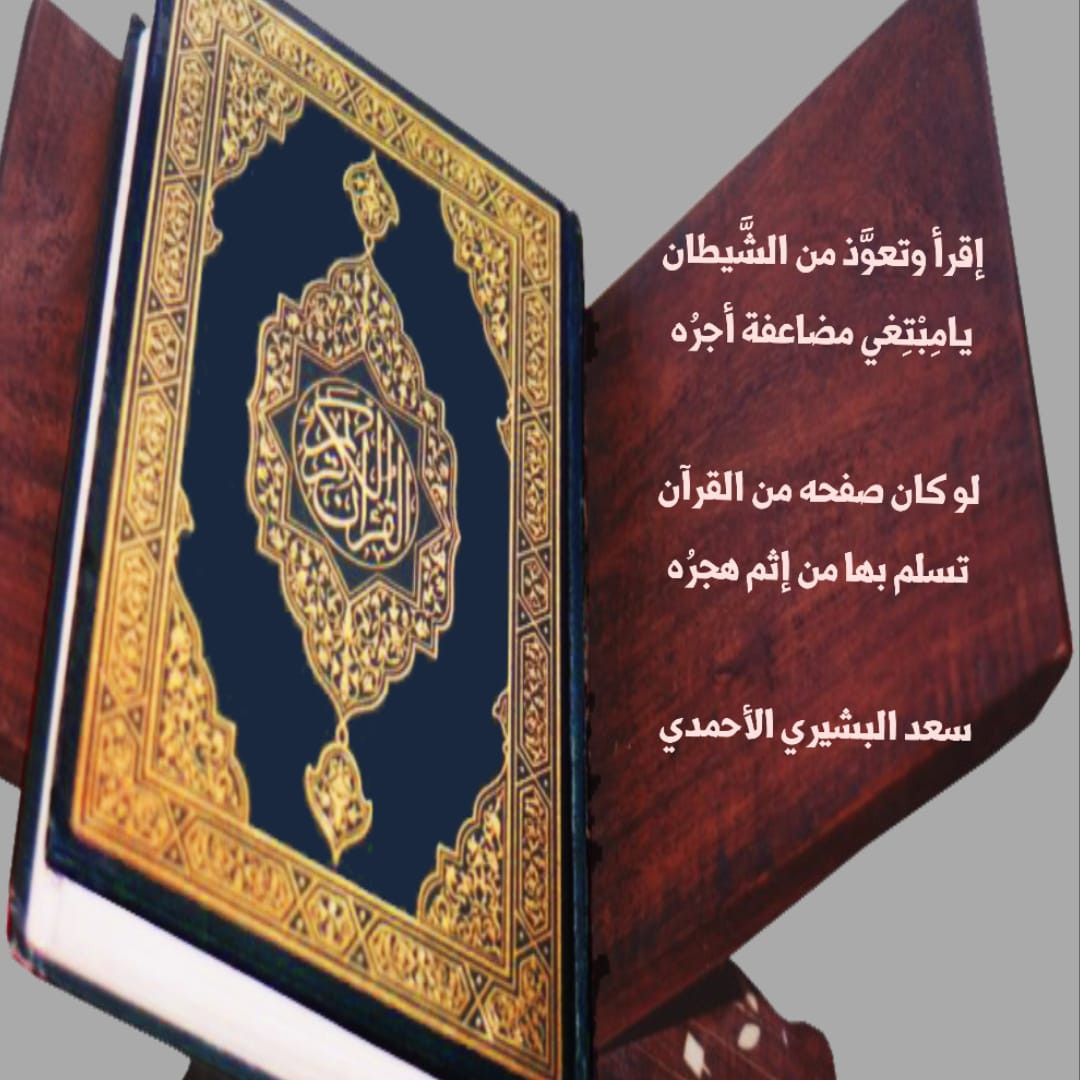 إقرأ وتعوَّذ من الشَّيطان
يامِبْتِغي مضاعفة أجرُه
لو كان صفحه من القرآن
تسلم بها من إثم هجرُه
سعد البشيري الأحمدي
القرآن الكريم